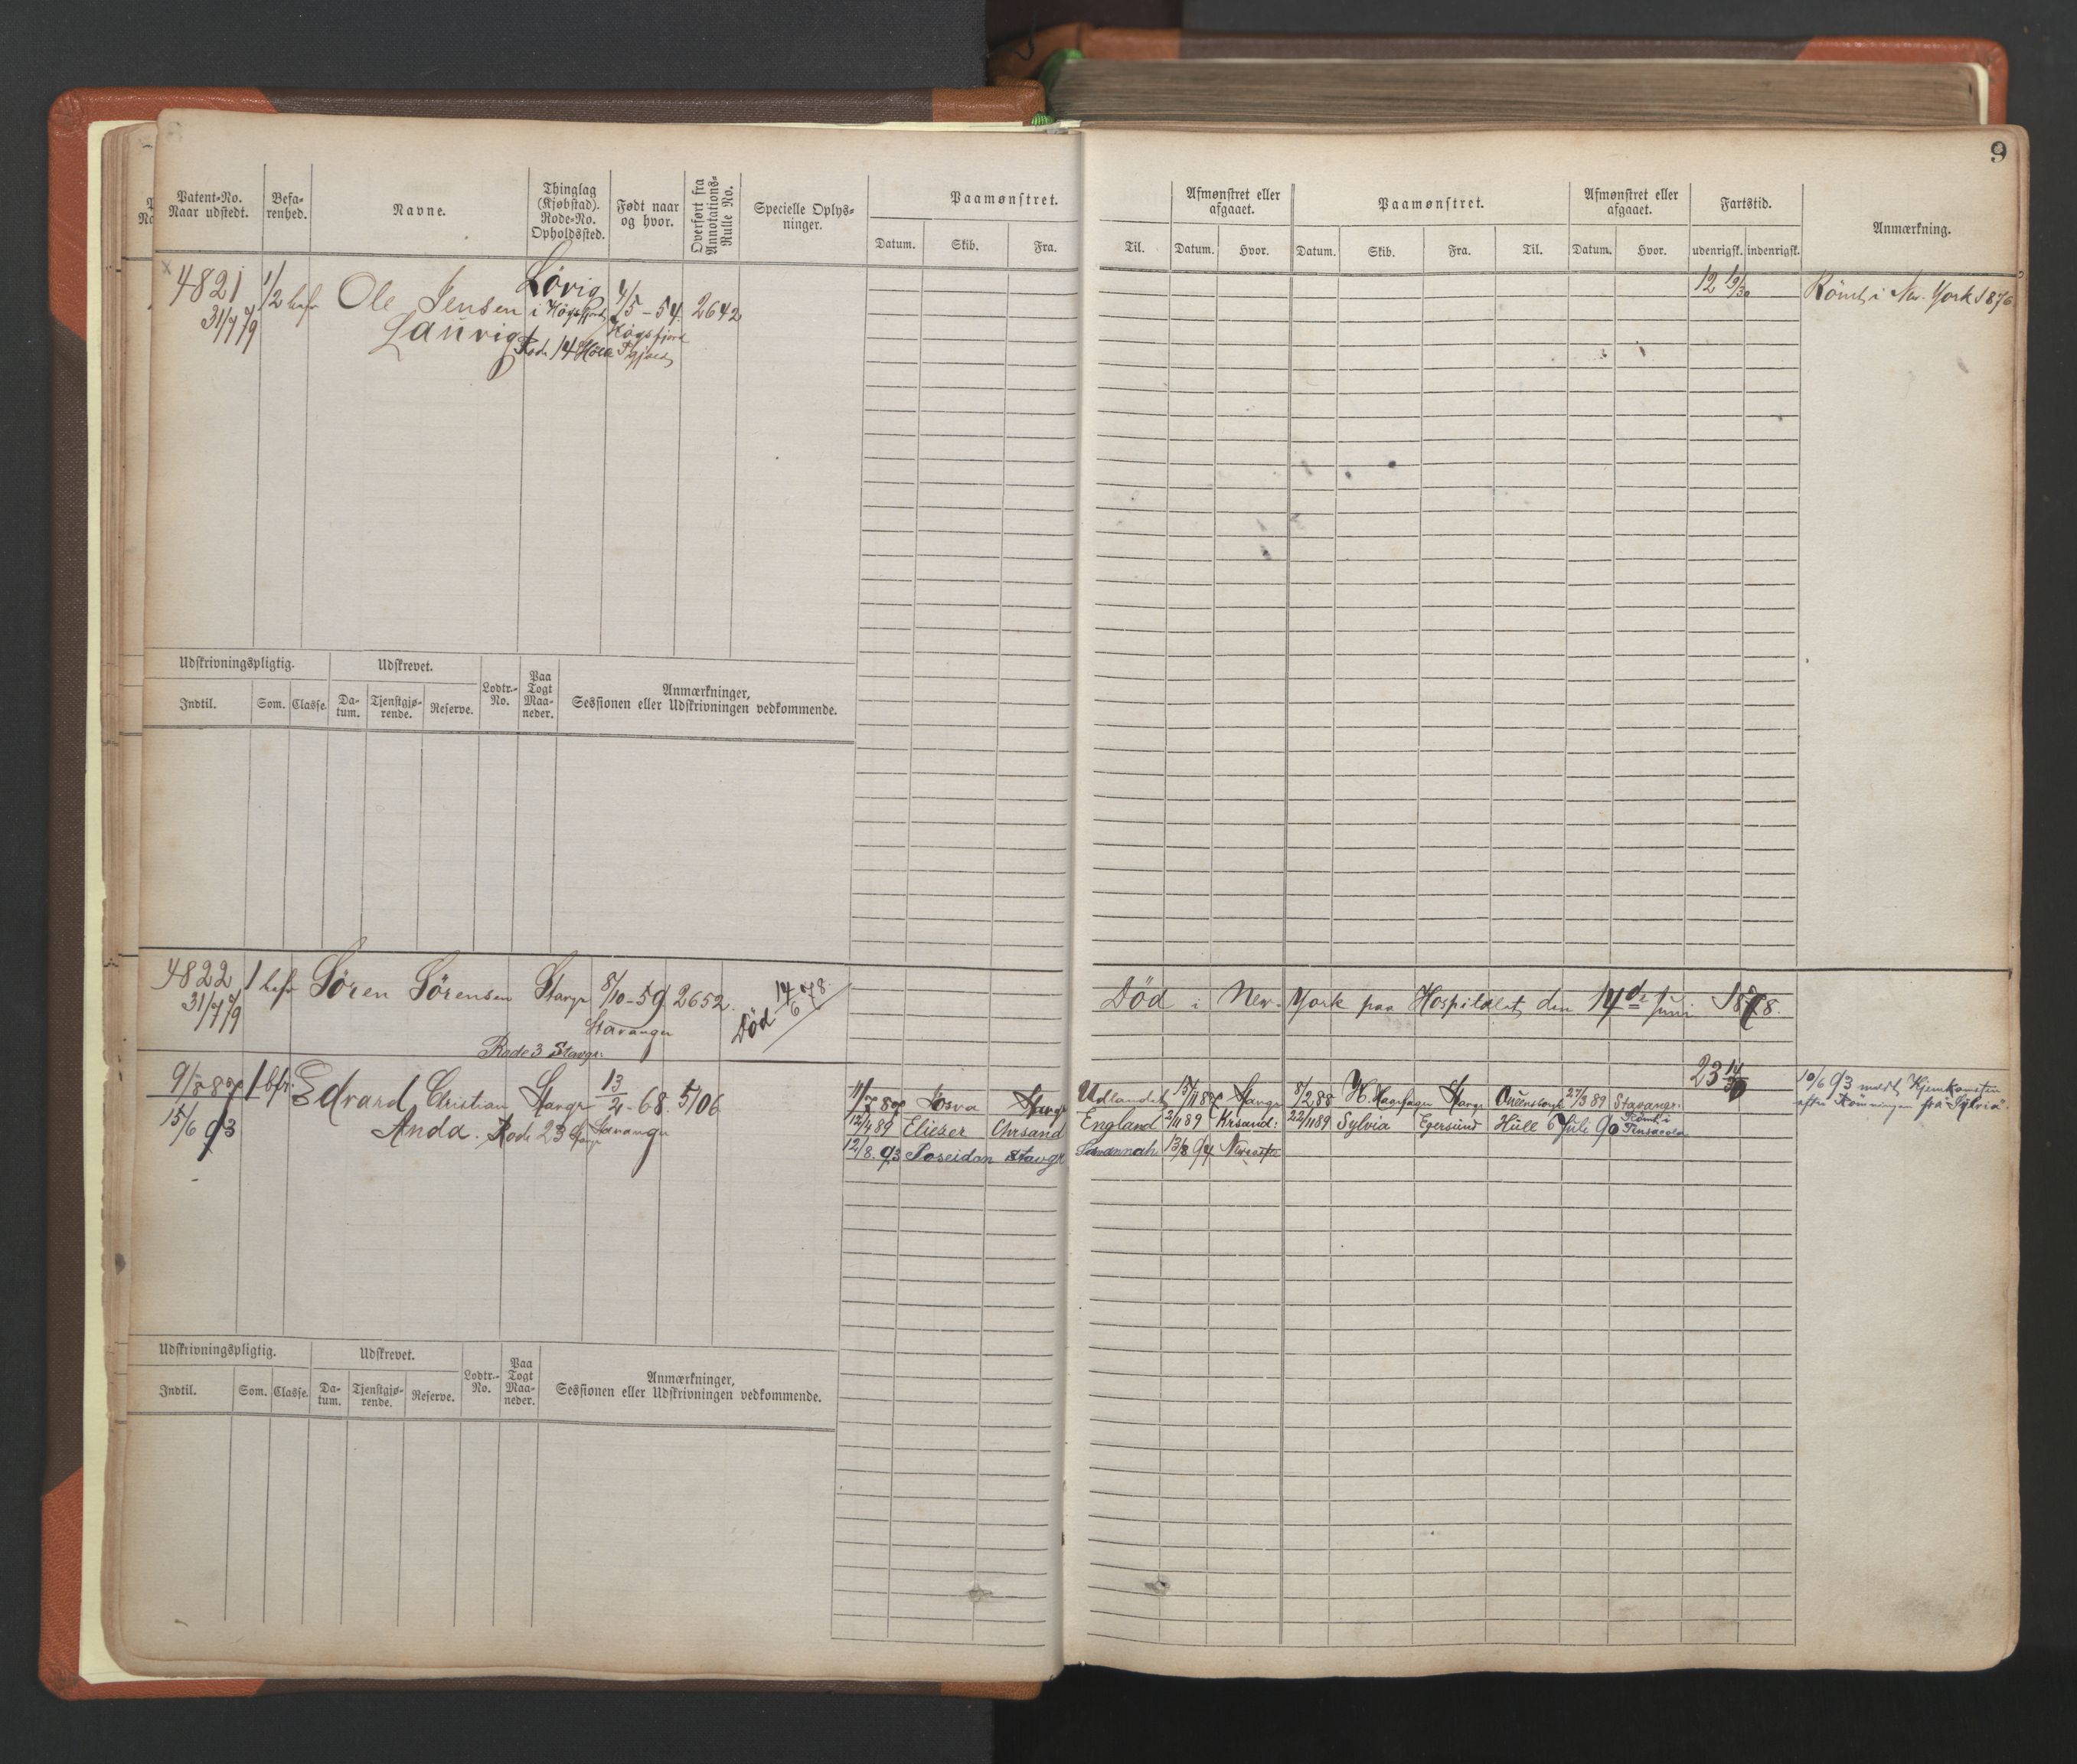 9
Patent-No. Naar udstedt.
Befarenhed.
Navne.
Thinglag (Kjøbstad). Rode-No. Opholdssted.
Født naar og hvor.
Overført fra Annotations-Rulle No.
Specielle Oplysninger.
Paamønstret.
Datum. Skib. Fra. Til.
Afmønstret eller afgaaet.
Datum. Hvor.
Paamønstret.
Datum. Skib. Fra. Til.
Afmønstret eller afgaaet.
Datum. Hvor.
Fartstid.
udenrigsk. indenrigsk.
Anmærkning.
4821 1/2 befr Ole Jensen Lørig 4/5-54. 2642
31/7 79 Laurig i Høgsfjord Høgsfjord
Rode 14
12 19/30 Römt i New-York 1876
Udskrivningspligtig. Udskrevet. Lodtr.-No. Paa Togt Maaneder. Anmærkninger, Sessionen eller Udskrivningen vedkommende.
Indtil. Som. Classe. Datum. Tjenstgjørende. Reserve.
4822 1 befr Sören Sörensen Stavgr 8/10-59 2652. Död 14/6 78.
31/7 79 Stavanger
Död i New-York paa Hospitalet den 14de Juni 1878.
Rode 3 Stavgr:
9/8 87 1 bfr. Edvard Christian Stavgr 13/2-68. 5106
15/6 93 Anda. Rode 23 Stavgr Stavanger
11/8 87 Josva Stavgr Udlandet 15/11 87 Stavgr 8/2 88 Stavgr 27/3 89 Stavanger.
12/4 89 Eliezer Chrsand England 2/11 89 Krsand: 22/11 89 Sylvia Egersund Hull 6 Juli 90 Römt i Pensacola
12/8. 93 Poseidon Stavgr Savannah 13/8 94
23 14/30
10/6 93 meldt Hjemkomsten
efter Römningen fra "Sylvia".
Udskrivningspligtig. Udskrevet. Lodtr.-No. Paa Togt Maaneder. Anmærkninger, Sessionen eller Udskrivningen vedkommende.
Indtil. Som. Classe. Datum. Tjenstgjørende. Reserve.